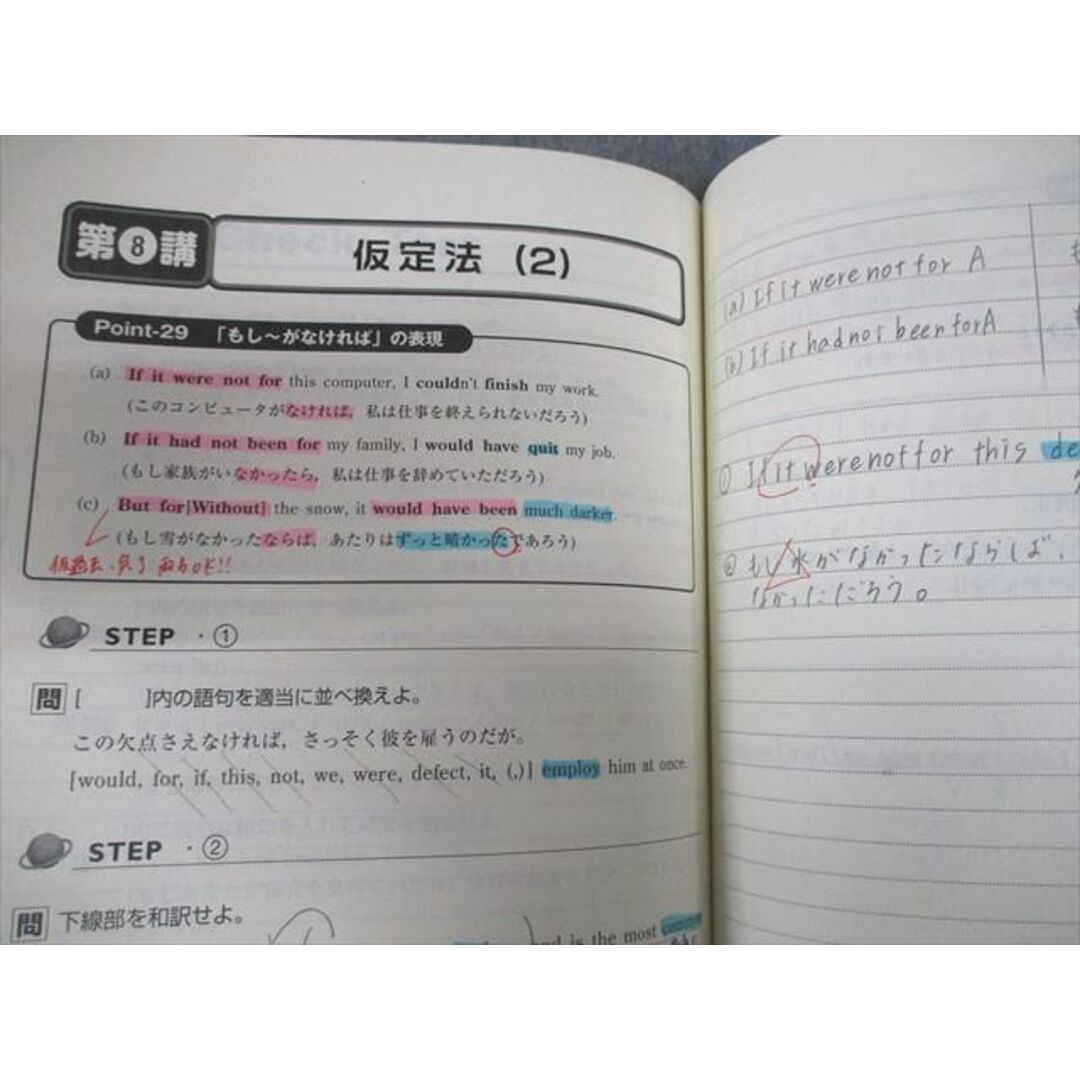 第8講
仮定法 (2)
Point-29 「もし〜がなければ」の表現
(a) If it were not for this computer, I couldn't finish my work.
(このコンピュータがなければ，私は仕事を終えられないだろう)
(b) If it had not been for my family, I would have quit my job.
(もし家族がいなかったら，私は仕事を辞めていただろう)
(c) But for[Without] the snow, it would have been much darker.
(もし雪がなかったならば，あたりはずっと暗かったであろう)
OK!!
STEP ・①
問 [ ]内の語句を適当に並べ換えよ。
この欠点さえなければ，さっそく彼を雇うのだが。
[would, for, if, this, not, we, were, defect, it, (,)] employ him at once.
STEP ・②
問 下線部を和訳せよ。
is the most
(a) If it were not for A
(b) If it had not been for A
① If it were not for this de
② もし水がなかったならば、
なかっただろう。